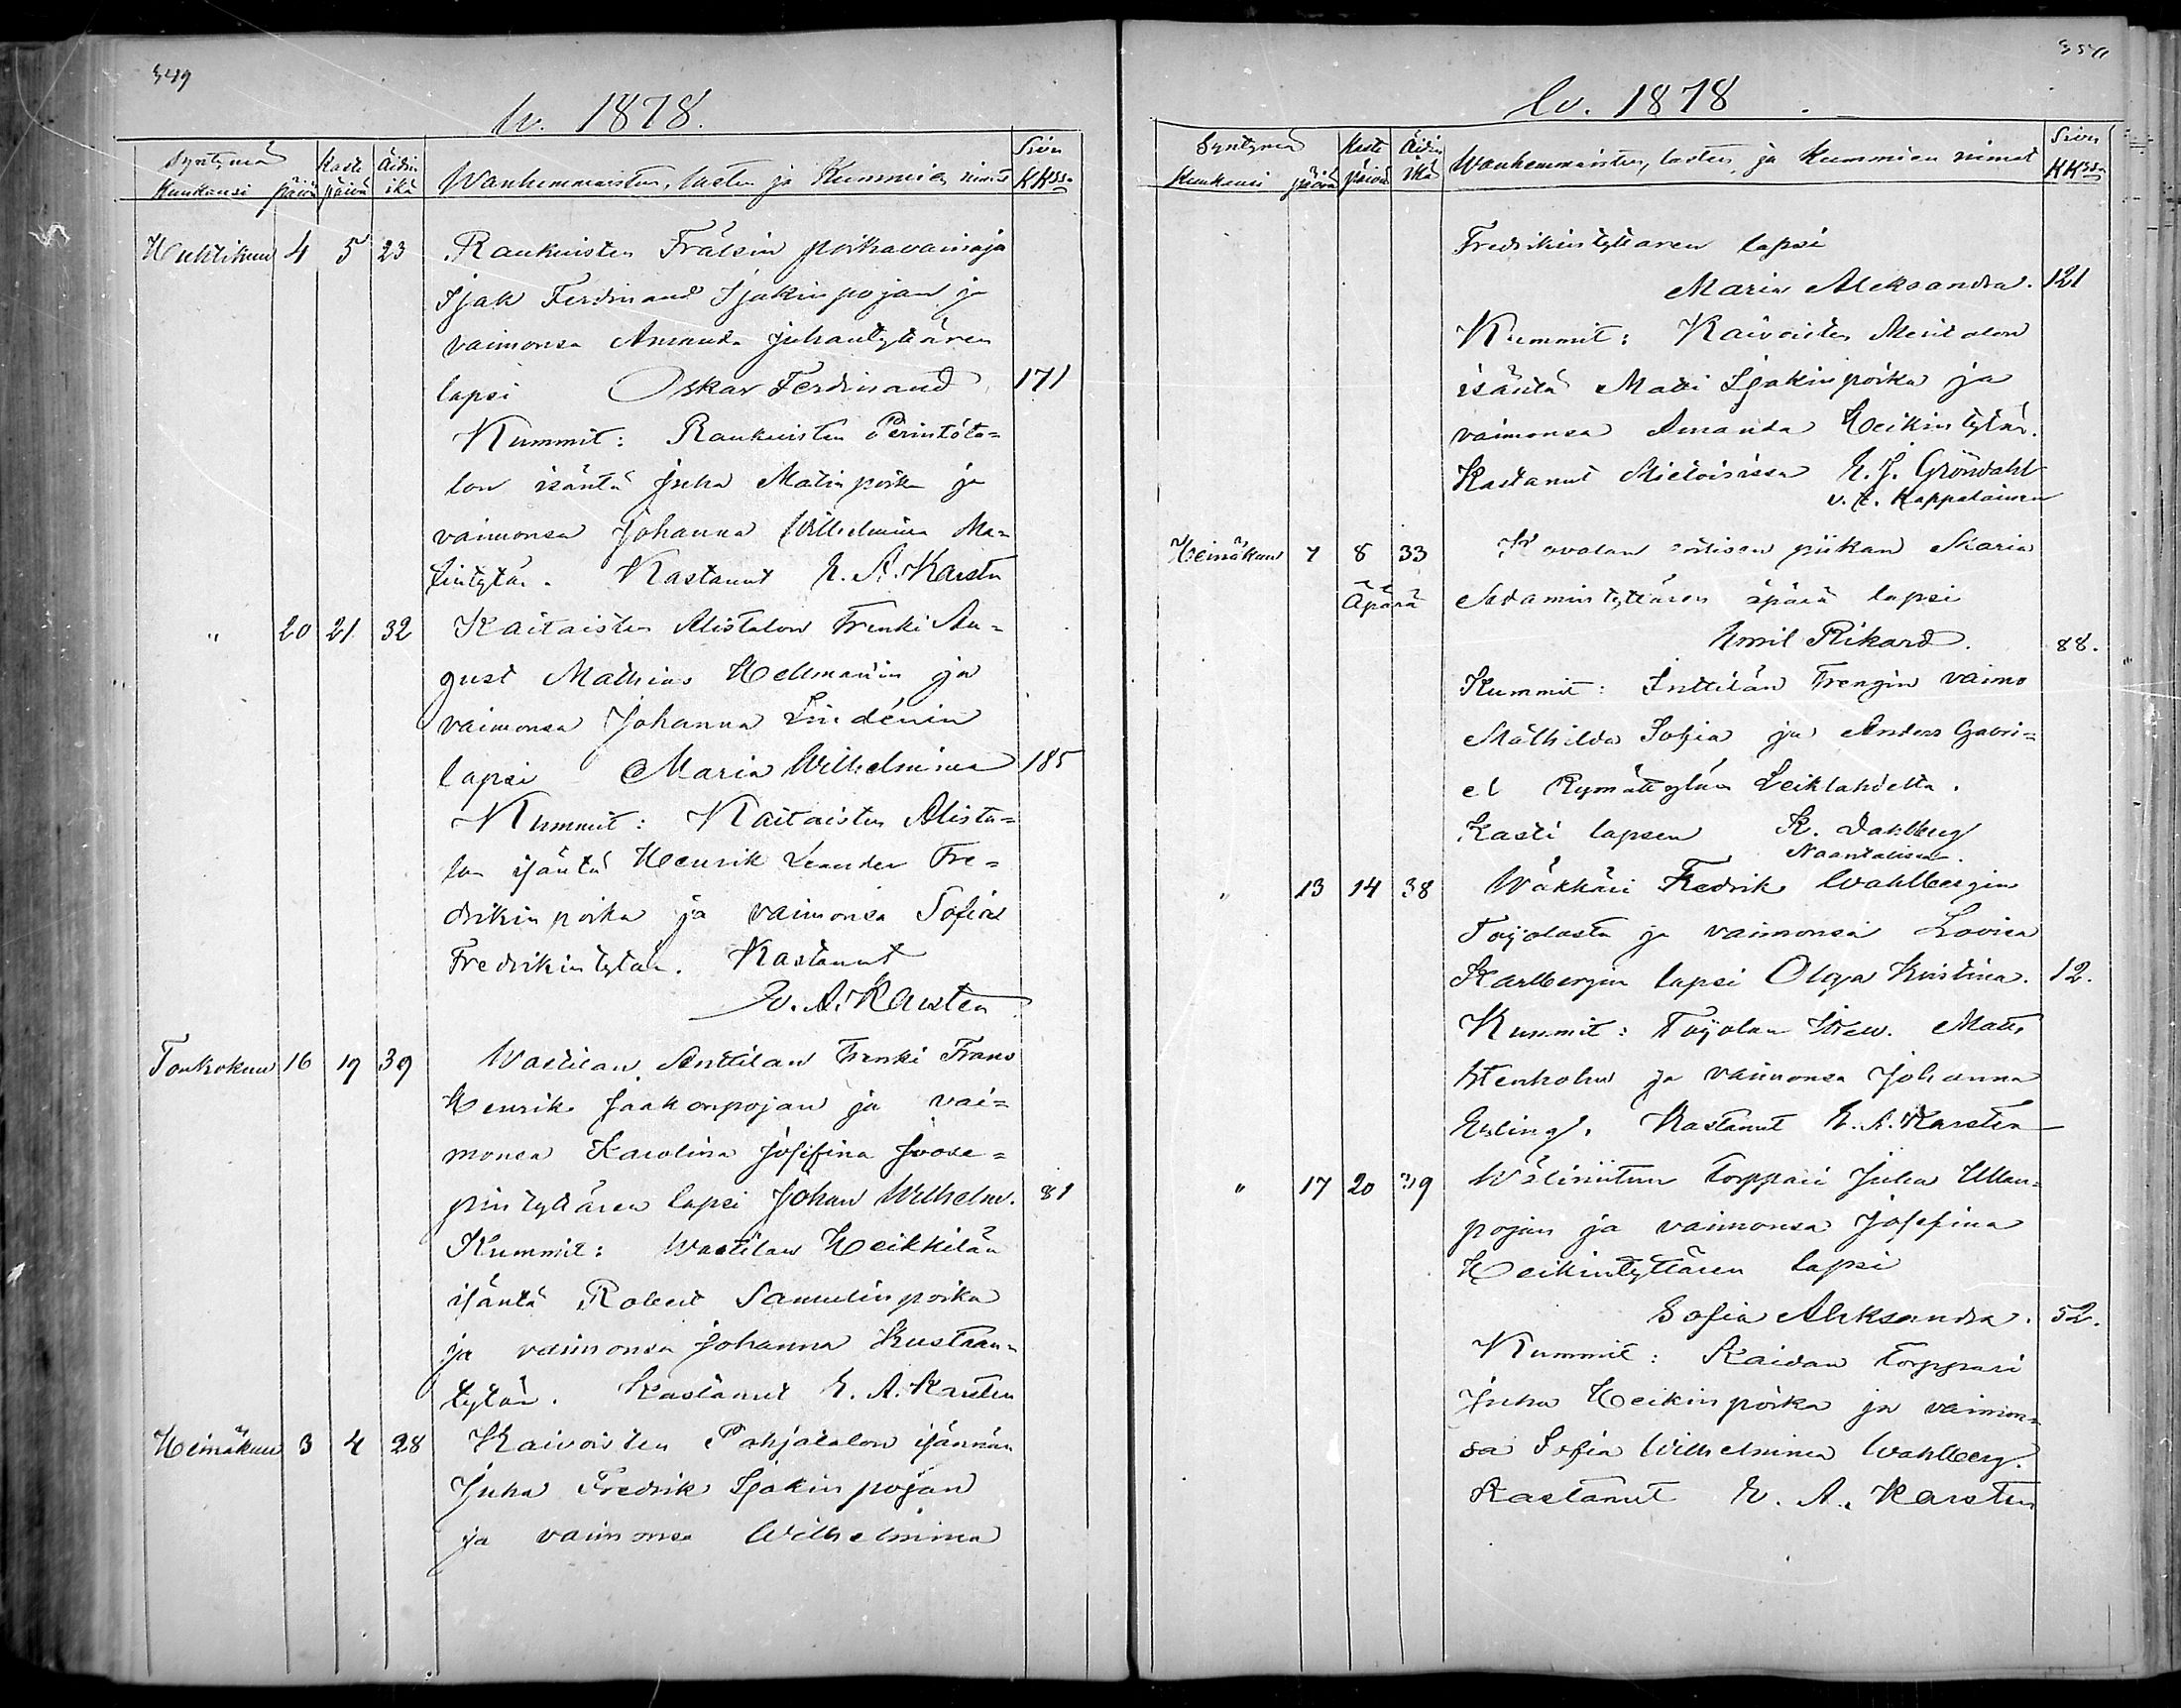 349
v. 1878.
Syntymä Kaste Äidin Wanhemmaisten, lasten ja Kummien nimet Sivu
Kuukausi päivä päivä ikä KKssa
Huhtikuu 4 5 23 Raukuisten Frälsin poikavainaja
Isak Ferdinand Isakinpojan ja
vaimonsa Amanda Juhantyttären
lapsi Oskar Ferdinand 171
Kummit: Raukuisten Perintöta=
lon isäntä Juha Matinpoika ja
vaimonsa Johanna Wilhelmina Ma=
tintytär. Kastanut E. A. Karstn
" 20 21 32 Kaitaisten Alistalon Trenki Au=
gust Mathias Hellmanin ja
vaimonsa Johanna Lindénin
lapsi Maria Wilhelmina 185
Kummit: Kaitaisten Alista=
lon isäntä Henrik Leander Fre=
drikinpoika ja vaimonsa Sofia
Fredrikintytär. Kastanut
E. A. Karsten
Toukokuu 16 19 39 Wastilan Anttilan Trenki Frans
Henrik Jaakonpojan ja vai=
monsa Karolina Josefina Joose=
pintyttären lapsi Johan Wilhelm. 81
Kummit: Wastilan Heikkilän
isäntä Robert Samulinpoika
ja vaimonsa Johanna Kustaan=
tytär. Kastanut E. A. Karsten
Heinäkuu 3 4 28 Kaivoisten Pohjatalon isännän
Juha Fredrik Isakinpojan
ja vaimonsa Wilhelmina
350
v. 1878
Syntymä Kaste Äidin Wanhemmaisten, lasten, ja Kummien nimet Sivu
Kuukausi päivä päivä ikä KKssa
Fredrikintyttären lapsi
Maria Aleksandra. 121
Kummit: Kaivoisten
isäntä Matti Isakinpoika ja
vaimonsa Amanda Heikintytär.
Kastanut Mietoisissa E. J. Gröndahl
v. t. Kappalainen
Heinäkuu 7 8 33 entisen piikan Maria
Äpärä Adamintyttären äpärä lapsi
Emil Rikard. 88.
Kummit: Inttilän Trengin vaimo
Mathilda Sofia ja Anders Gabri=
el Rymättylän
Kasti lapsen K. Dahlberg
Naantalissa.
" 13 14 38 Wäkkäri Fredrik Wahlbergin
Taijolasta ja vaimonsa Lovisa
Karlbergin lapsi Olga Kristina. 12.
Kummit: Taijolan Matts
Stenholm ja vaimonsa Johanna
Kastanut E. A. Karsten
" 17 20 39 Wäliniitun torppari Juha Ullan=
pojan ja vaimonsa Josefina
Heikintyttären lapsi
Sofia Aleksandra. 52.
Kummit: Kaidan torppari
Juha Heikinpoika ja vaimon=
sa Sofia Wilhelmina Wahlberg.
Kastanut E. A. Karsten